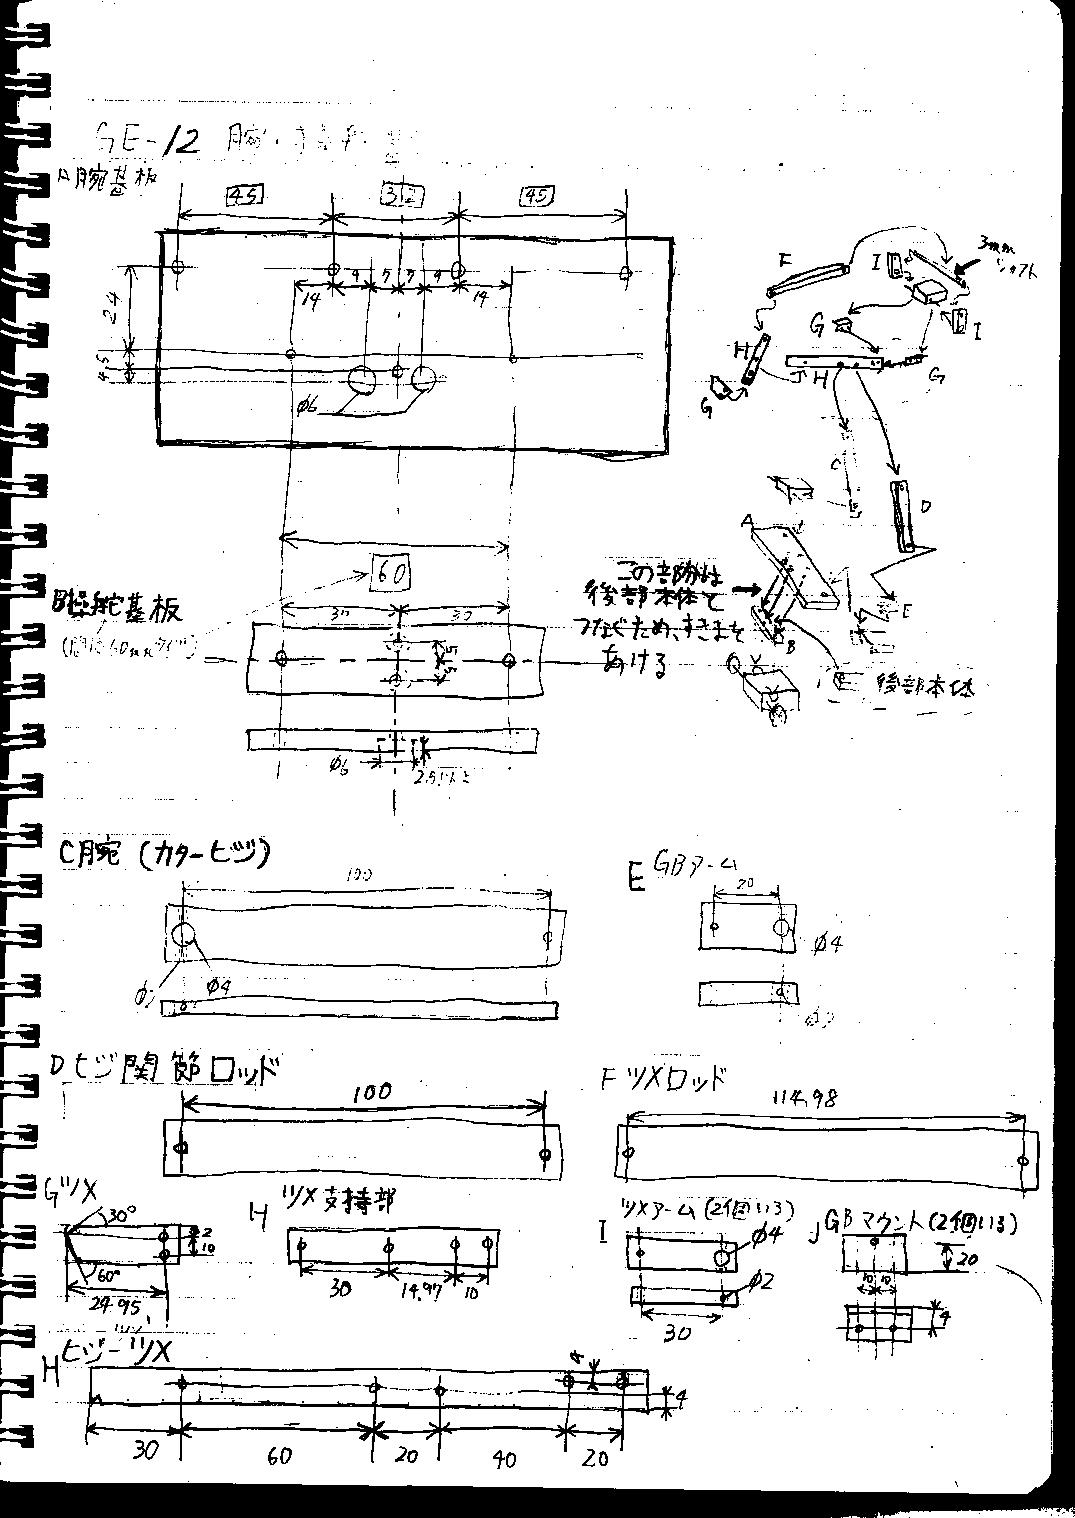 GE-12 腕
A 腕基板
45
32
45
14
9
7
7
9
14
24
5
4
φ6
60
B 操舵基板
30
30
5
5
φ6
2.5以上
F
I
3mm
シャフト
G
I
H
J H
G
G
C
D
A
E
B
この部分は
後部本体と
つなぐため、すきまを
あける
後部本体
C 腕 (カタービジ)
100
φ4
E GBアーム
20
φ4
D ヒジ関節ロッド
100
F ツメロッド
114.98
G ツメ
30°
60°
2
10
24.95
H ツメ支持部
30
14.97
10
I ツメアーム (2個いる)
φ4
φ2
30
J GBマウント (2個いる)
20
10
10
4
H ヒジーツメ
4
4
30
60
20
40
20